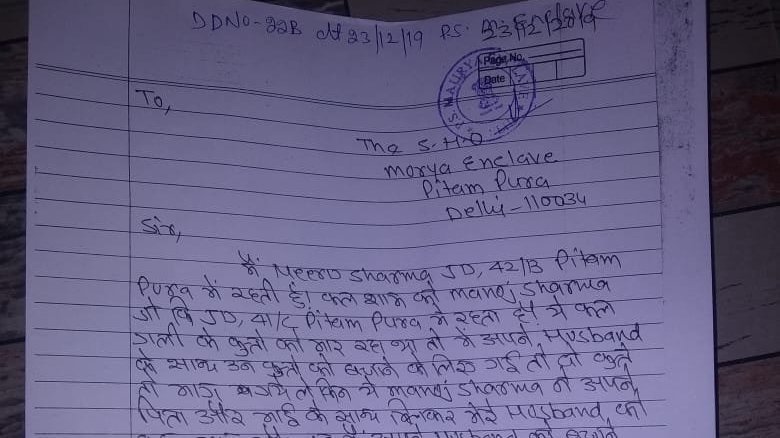 DDNO-22B dt 23/12/19 PS.
Page No.
Date
To,
The S.H.O
Morya Enclave
Pitam Pura
Delhi-110034
Sir,
मैं Meero Sharma JD, 42/B Pitam
Pura में रहती हूँ। कल शाम को Manoj Sharma
जो कि JD, 41/C Pitam Pura में रहता है। ये कल
गली के कुत्तो को मार रहा था तो मैं अपने Husband
के साथ उन कुत्तो को बचाने के लिए गई तो वो कुत्ते
तो भाग गये लेकिन ये Manoj Sharma ने अपने
पिता और भाई के साथ मिलकर मेरे Husband को